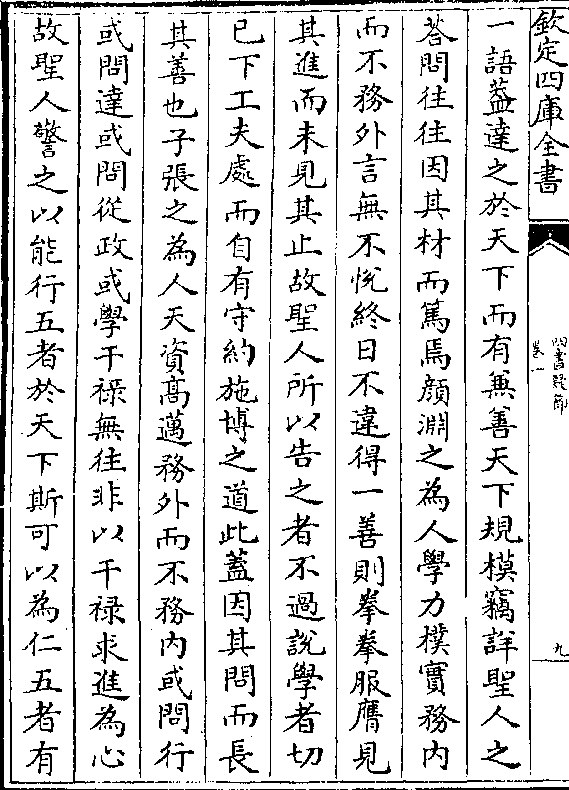 欽定四庫全書
四書疑節
卷一
九
一語葢達之於天下而有兼善天下規模竊詳聖人之
荅問往往因其材而篤焉顔淵之為人學力樸實務内
而不務外言無不悅終日不違得一善則拳拳服膺見
其進而未見其止故聖人所以告之者不過說學者切
已下工夫處而自有守約施博之道此蓋因其問而長
其善也子張之為人天資髙邁務外而不務内或問行
或問達或問從政或學干祿無往非以干祿求進為心
故聖人警之以能行五者於天下斯可以為仁五者有